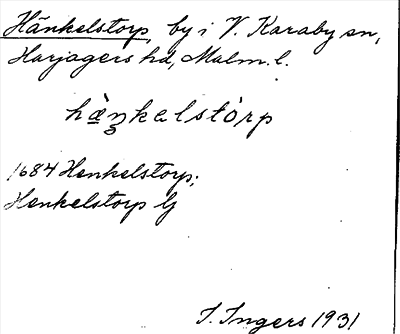 Hänkelstorp, by i V. Karaby sn,
Harjagers hd, Malm. l.
hæ̀ŋkelstòrp
1684 Henkelstorp;
Henkelstorp
I. Ingers 1931